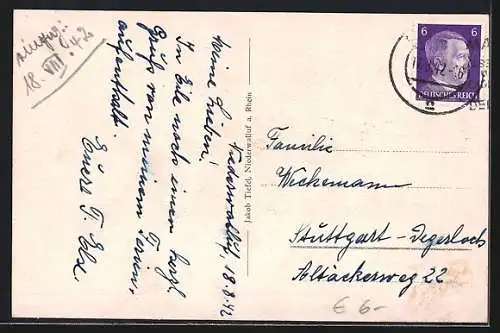 eingeg.:
18. VIII. 42
Niederwalluf, 18.8.42
Meine Lieben!
In Eile noch einen herzl.
Gruß von meinem Ferien-
aufenthalt.
Euere T. Else.
Jakob Tiefel, Niederwalluf a. Rhein
6 6
DEUTSCHES REICH
Familie
Wickemann
Stuttgart-Degerloch
Altäckerweg 22
€ 6-